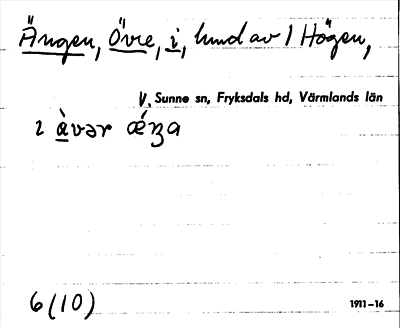 Ängen, Övre, i, hmd av 1 Högen,
V. Sunne sn, Fryksdals hd, Värmlands län
2 àvər ǽŋa
6 (10)
1911–16